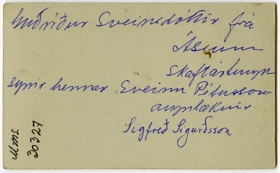 Guðríður Sveinsdóttir frá
Ásum
Skaftártungu
synir hennar Sveinn Pétursson
augnlæknir
Sigfreð Sigurðsson
Mms.
30327